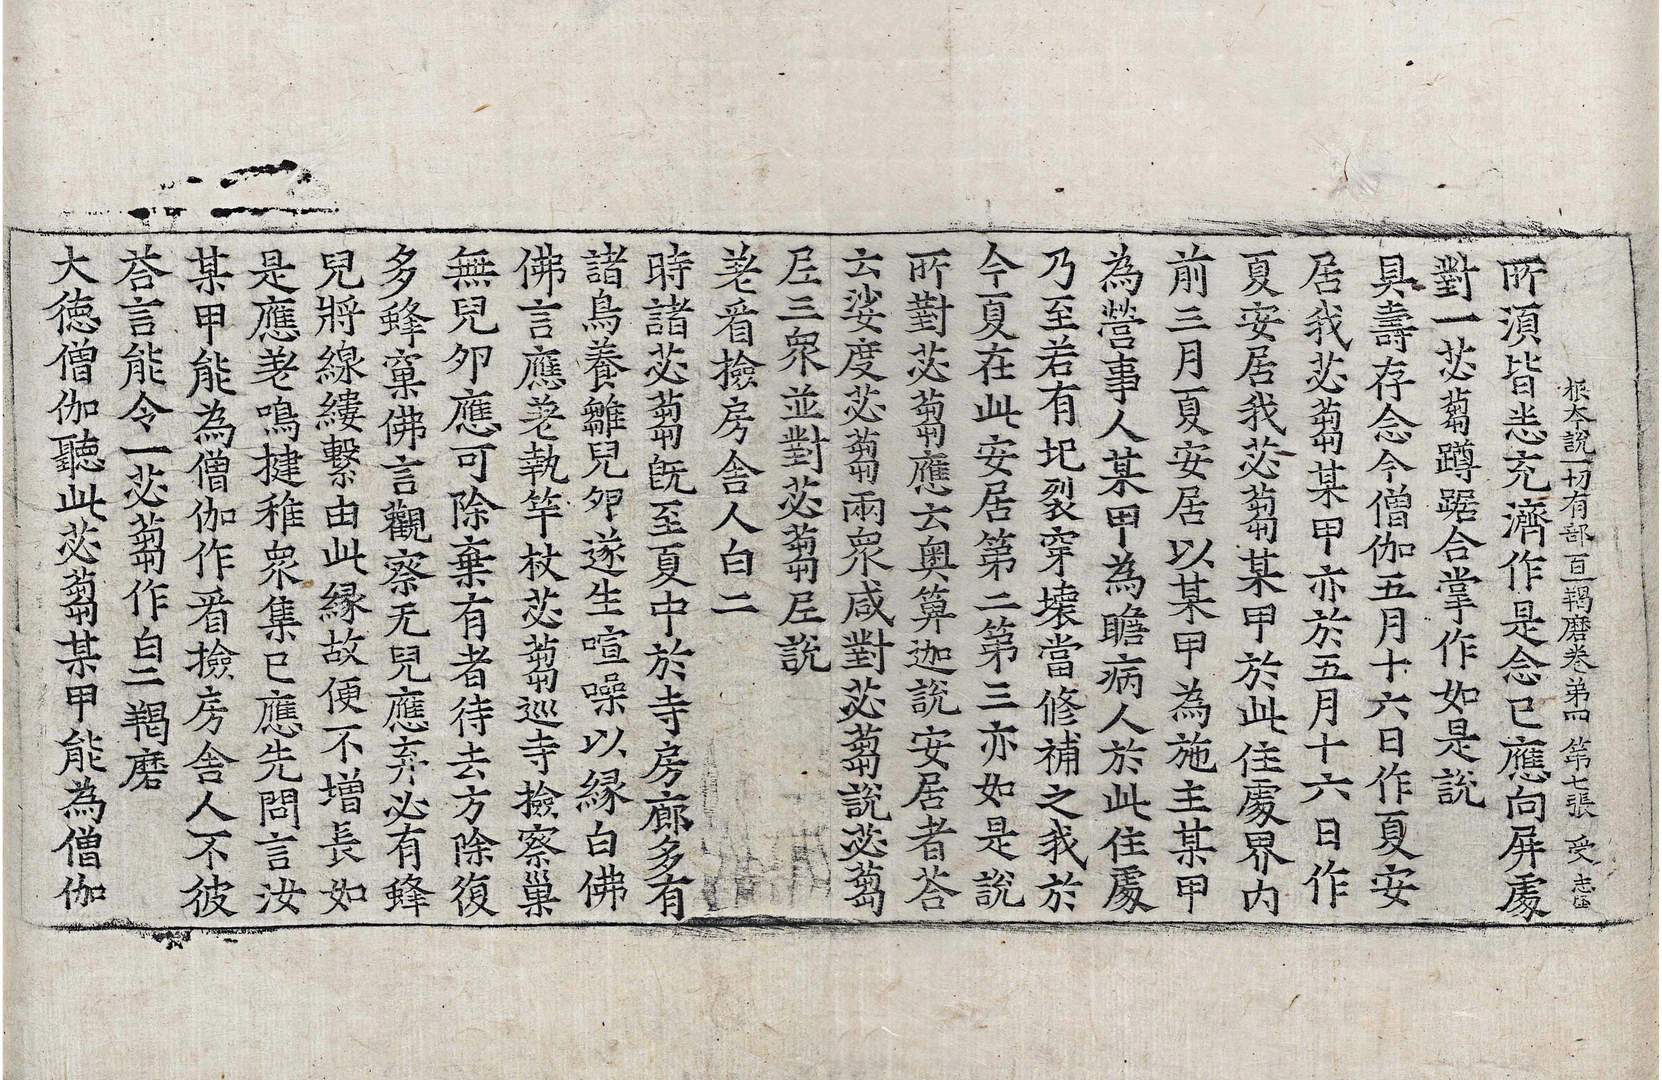 根本說一切有部百一羯磨卷第四 第七張 受 志
所須皆悉充濟作是念已應向屏處
對一苾蒭蹲踞合掌作如是說
具壽存念今僧伽五月十六日作夏安
居我苾蒭某甲亦於五月十六日作
夏安居我苾蒭某甲於此住處界內
前三月夏安居以某甲為施主某甲
為營事人某甲為瞻病人於此住處
乃至若有圯裂穿壞當修補之我於
今夏在此安居第二第三亦如是說
所對苾蒭應云奧箄迦說安居者荅
云娑度苾蒭兩衆咸對苾蒭說苾蒭
尼三衆並對苾蒭尼說
差看撿房舍人白二
時諸苾蒭既至夏中於寺房廊多有
諸鳥養雛兒卵遂生喧噪以緣白佛
佛言應差執竿杖苾蒭巡寺撿察巢
無兒卵應可除棄有者待去方除復
多蜂窠佛言觀察无兒應弃必有蜂
兒將線縷繫由此緣故便不增長如
是應差鳴揵稚衆集已應先問言汝
某甲能為僧伽作看撿房舍人不彼
荅言能令一苾蒭作白二羯磨
大德僧伽聽此苾蒭某甲能為僧伽